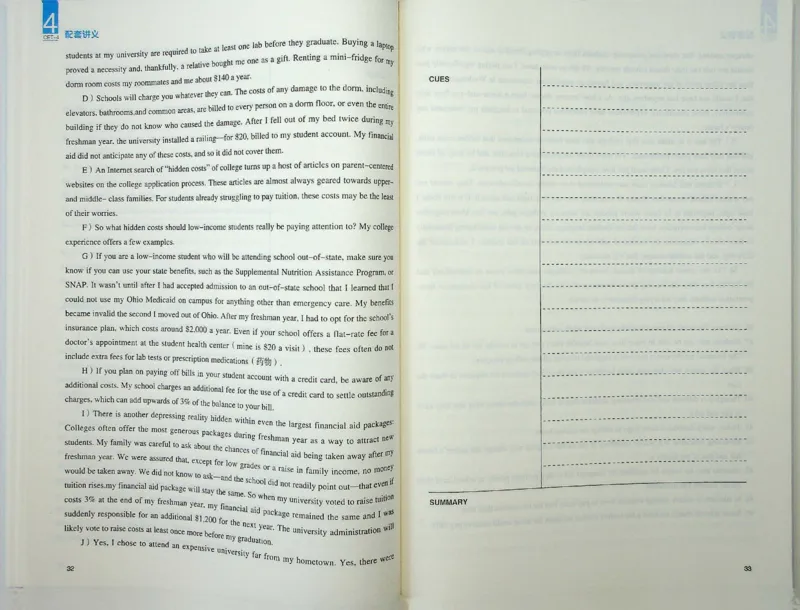 4
CET-4
配套讲义
students at my university are required to take at least one lab before they graduate. Buying a laptop
proved a necessity and, thankfully, a relative bought me one as a gift. Renting a mini-fridge for my
dorm room costs my roommates and me about $140 a year.
D) Schools will charge you whatever they can. The costs of any damage to the dorm, including
elevators, bathrooms,and common areas, are billed to every person on a dorm floor, or even the entire
building if they do not know who caused the damage. After I fell out of my bed twice during my
freshman year, the university installed a railing—for $20, billed to my student account. My financial
aid did not anticipate any of these costs, and so it did not cover them.
E) An Internet search of "hidden costs" of college turns up a host of articles on parent-centered
websites on the college application process. These articles are almost always geared towards upper-
and middle- class families. For students already struggling to pay tuition, these costs may be the least
of their worries.
F) So what hidden costs should low-income students really be paying attention to? My college
experience offers a few examples.
G) If you are a low-income student who will be attending school out-of-state, make sure you
know if you can use your state benefits, such as the Supplemental Nutrition Assistance Program, or
SNAP. It wasn't until after I had accepted admission to an out-of-state school that I learned that I
could not use my Ohio Medicaid on campus for anything other than emergency care. My benefits
became invalid the second I moved out of Ohio. After my freshman year, I had to opt for the school's
insurance plan, which costs around $2,000 a year. Even if your school offers a flat-rate fee for a
doctor's appointment at the student health center (mine is $20 a visit), these fees often do not
include extra fees for lab tests or prescription medications (药物).
H) If you plan on paying off bills in your student account with a credit card, be aware of any
additional costs. My school charges an additional fee for the use of a credit card to settle outstanding
charges, which can add upwards of 3% of the balance to your bill.
I) There is another depressing reality hidden within even the largest financial aid packages:
Colleges often offer the most generous packages during freshman year as a way to attract new
students. My family was careful to ask about the chances of financial aid being taken away after my
freshman year. We were assured that, except for low grades or a raise in family income, no money
would be taken away. We did not know to ask—and the school did not readily point out—that even if
tuition rises,my financial aid package will stay the same. So when my university voted to raise tuition
costs 3% at the end of my freshman year, my financial aid package remained the same and I was
suddenly responsible for an additional $1,200 for the next year. The university administration will
likely vote to raise costs at least once more before my graduation.
J) Yes, I chose to attend an expensive university far from my hometown. Yes, there were
32
CUES
SUMMARY
33